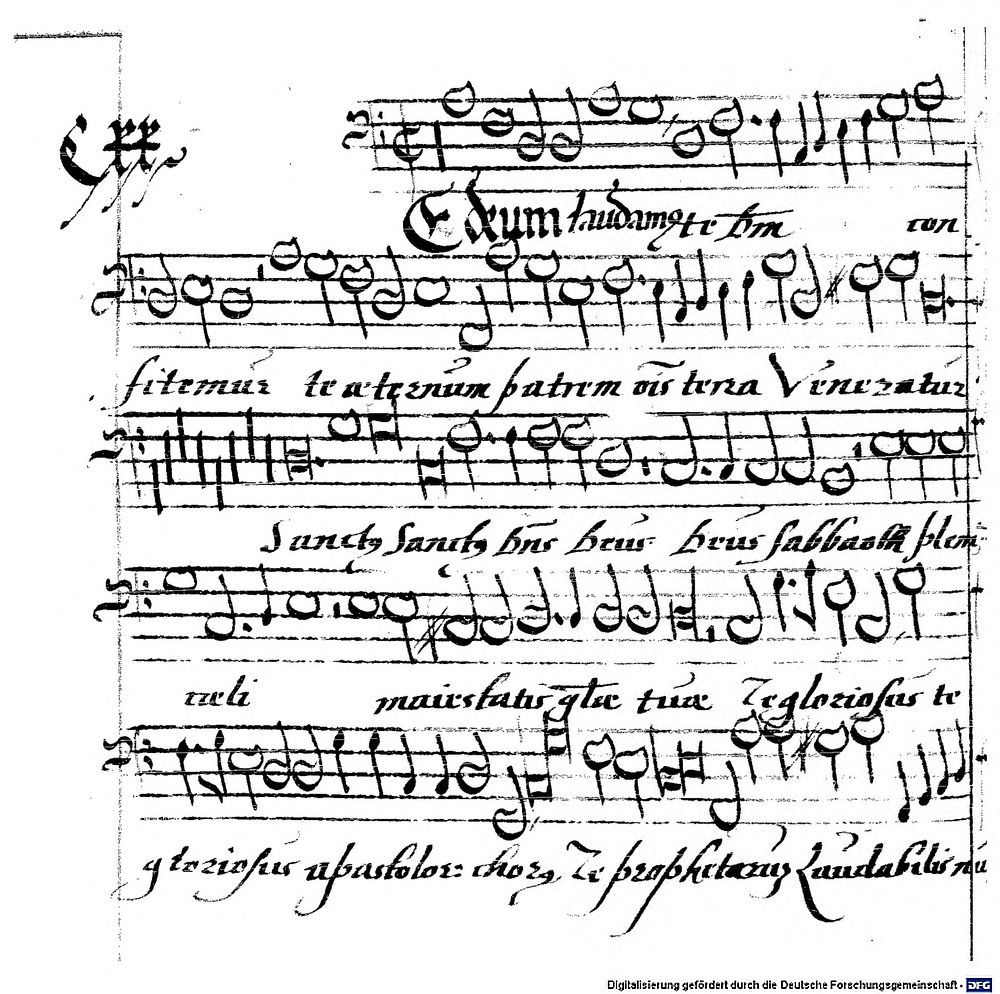 E deum laudamꝰ te dm̄ con
fitemur te æternum patrem oīs terra Veneratur
Sanctꝰ Sanctꝰ dn̄s deus deus sabbaoth plem
cæli maiestatis glæ tuæ Te gloriosus te
gloriosus apastolor: chorꝰ Te prophetarum Laudabilis nu
Digitalisierung gefördert durch die Deutsche Forschungsgemeinschaft - DFG